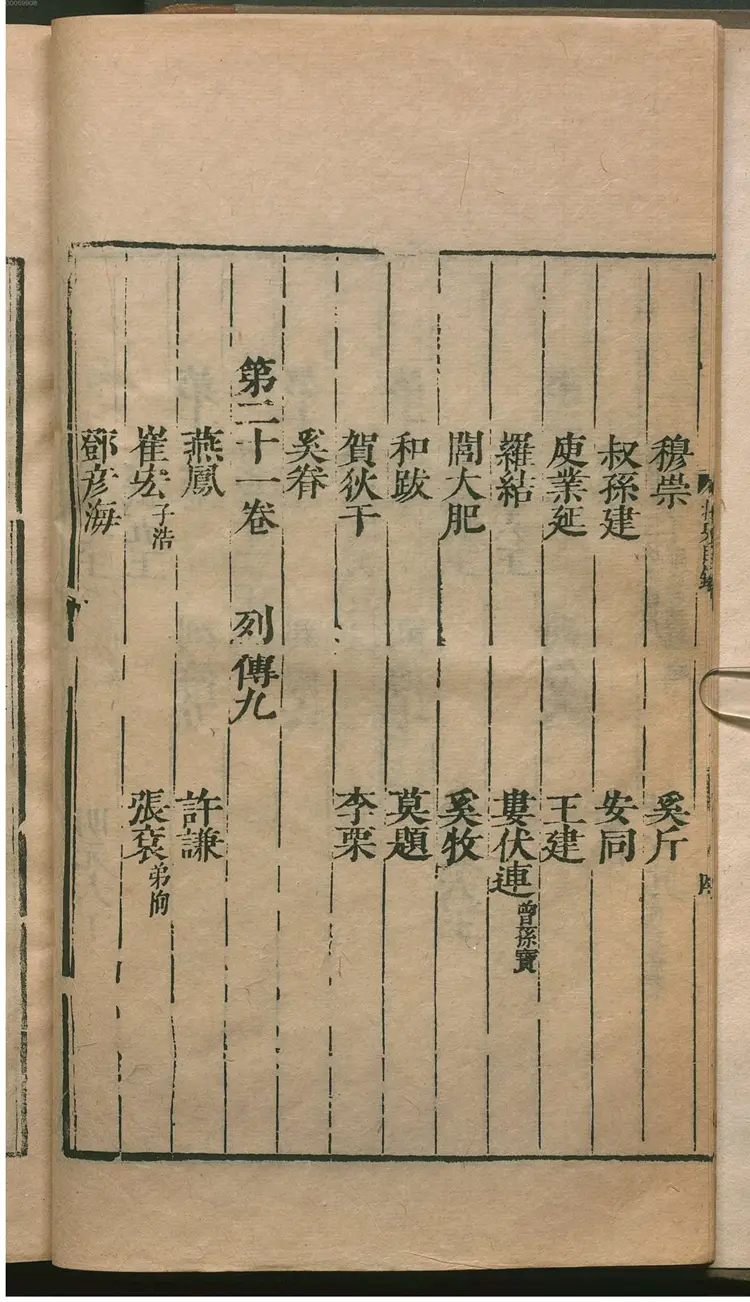 穆崇 奚斤
叔孫建 安同
庾業延 王建
羅結 婁伏連曾孫寶
閭大肥 奚牧
和跋 莫題
賀狄干 李栗
奚眷
第二十一卷 列傳九
燕鳳 許謙
崔宏子浩 張袞弟恂
鄧彥海